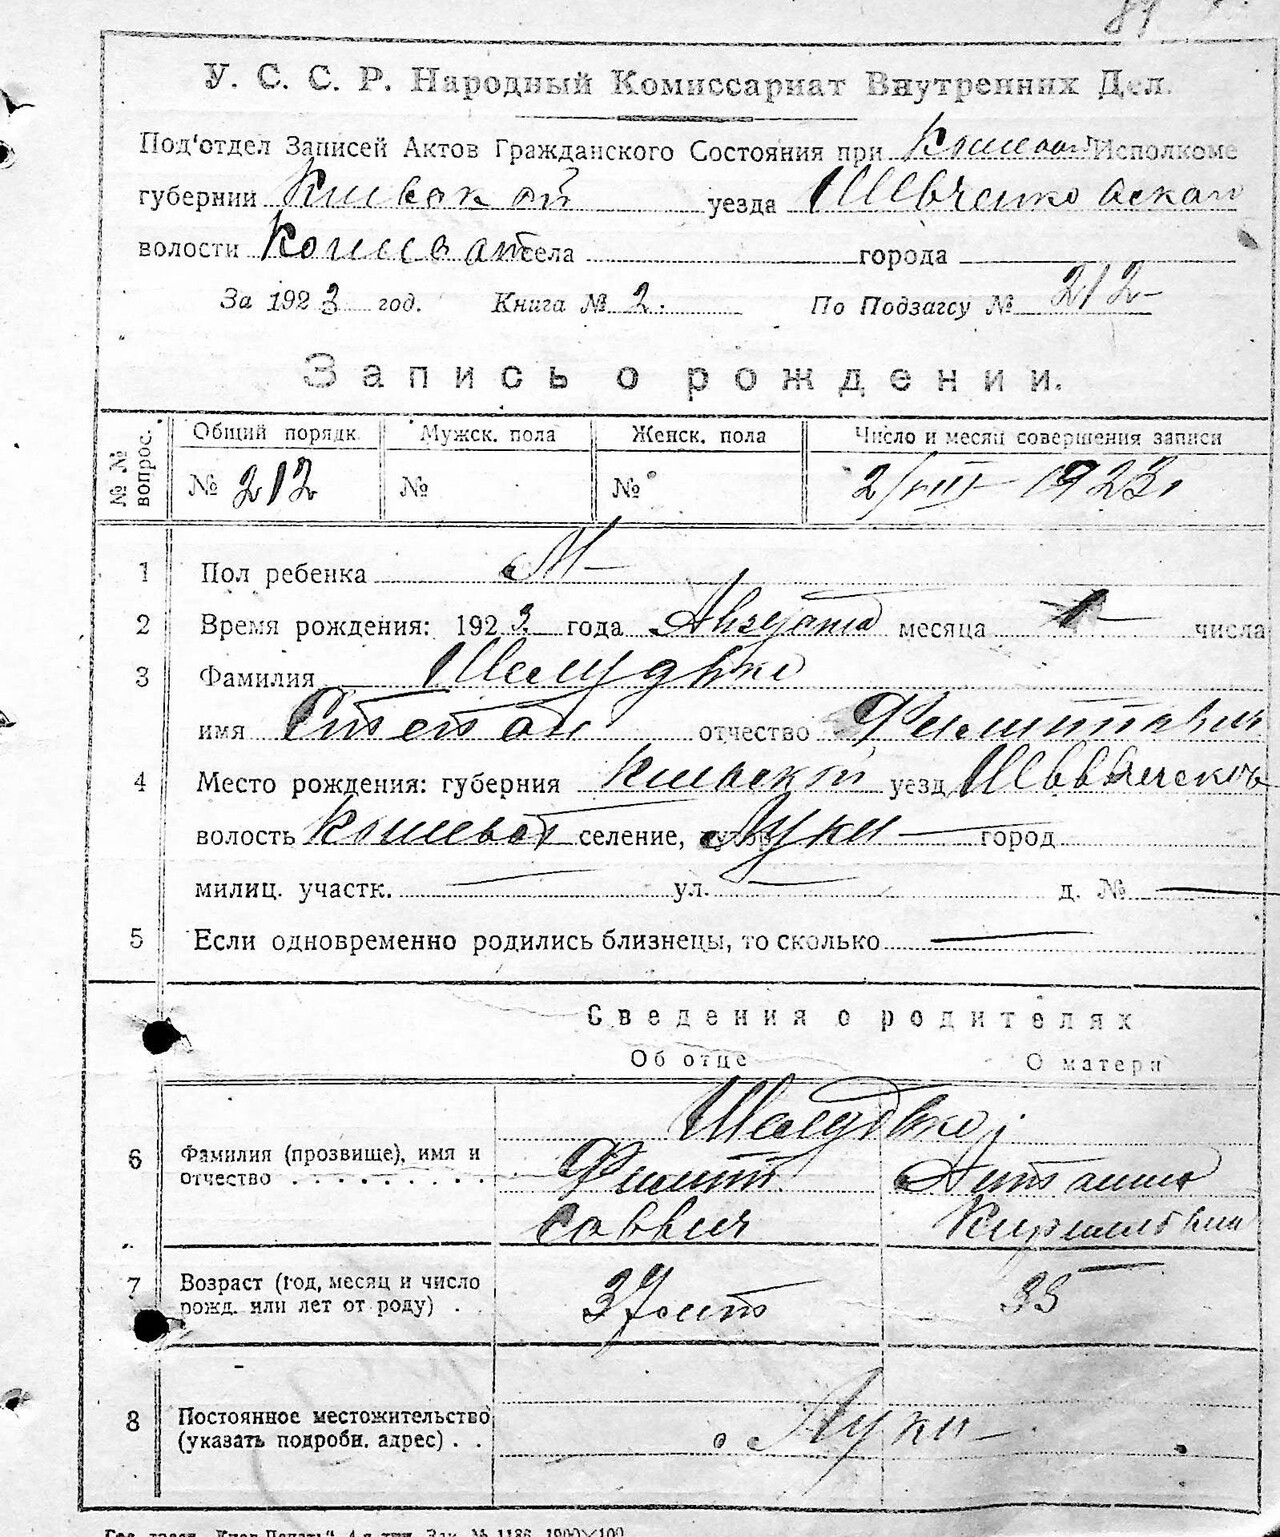 У. С. С. Р. Народный Комиссариат Внутренних Дел.
Под'отдел Записей Актов Гражданского Состояния при Исполкоме
губернии Киевской уезда Шевченковскаго
волости села города
За 1923 год. Книга № 2. По Подзагсу № 212
Запись о рождении.
№ № вопрос. Общий порядк. Мужск. пола Женск. пола Число и месяц совершения записи
№ 212 № № 2/VIII 1923.
1 Пол ребенка М
2 Время рождения: 1923 года Августа месяца 1 числа
3 Фамилия Шелудько
имя Степан отчество Филиппович
4 Место рождения: губерния Киевской уезд
волость селение, хутор Луки город
милиц. участк. ул. д. №
5 Если одновременно родились близнецы, то сколько
Сведения о родителях
Об отце О матери
Шелудько
6 Фамилия (прозвище), имя и Филипп
отчество Саввич Кирилловна
7 Возраст (год, месяц и число
рожд. или лет от роду) . 37 лет 35
8 Постоянное местожительство
(указать подробн. адрес) . . Луки